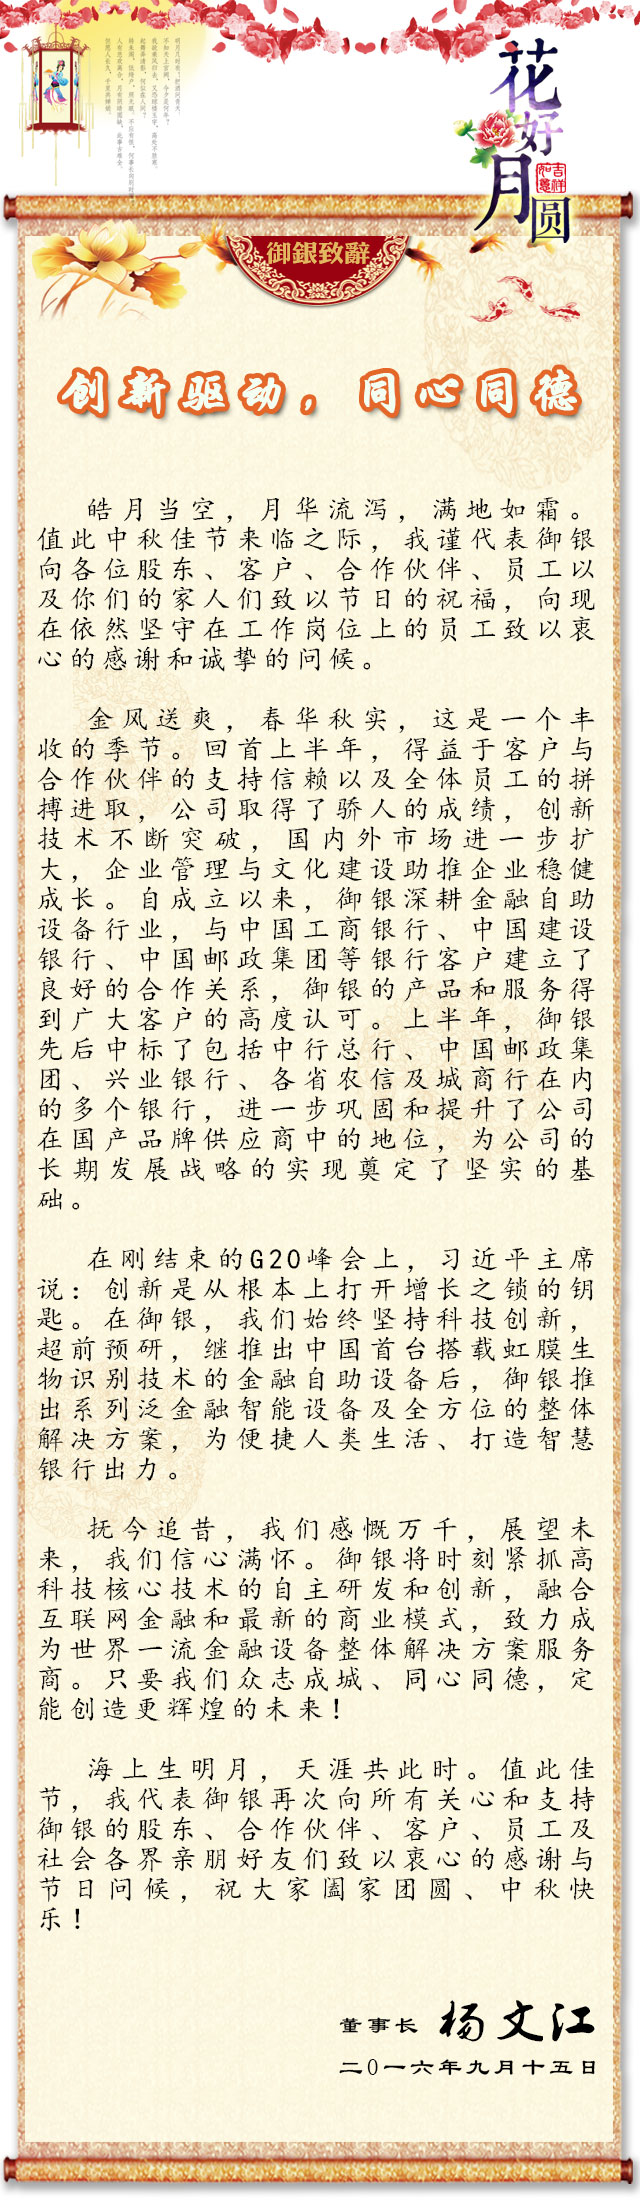 花好月圆
吉祥
如意
御銀致辭
创新驱动，同心同德
皓月当空，月华流泻，满地如霜。
值此中秋佳节来临之际，我谨代表御银
向各位股东、客户、合作伙伴、员工以
及你们的家人们致以节日的祝福，向现
在依然坚守在工作岗位上的员工致以衷
心的感谢和诚挚的问候。
金风送爽，春华秋实，这是一个丰
收的季节。回首上半年，得益于客户与
合作伙伴的支持信赖以及全体员工的拼
搏进取，公司取得了骄人的成绩，创新
技术不断突破，国内外市场进一步扩
大，企业管理与文化建设助推企业稳健
成长。自成立以来，御银深耕金融自助
设备行业，与中国工商银行、中国建设
银行、中国邮政集团等银行客户建立了
良好的合作关系，御银的产品和服务得
到广大客户的高度认可。上半年，御银
先后中标了包括中行总行、中国邮政集
团、兴业银行、各省农信及城商行在内
的多个银行，进一步巩固和提升了公司
在国产品牌供应商中的地位，为公司的
长期发展战略的实现奠定了坚实的基
础。
在刚结束的G20峰会上，习近平主席
说：创新是从根本上打开增长之锁的钥
匙。在御银，我们始终坚持科技创新，
超前预研，继推出中国首台搭载虹膜生
物识别技术的金融自助设备后，御银推
出系列泛金融智能设备及全方位的整体
解决方案，为便捷人类生活、打造智慧
银行出力。
抚今追昔，我们感慨万千，展望未
来，我们信心满怀。御银将时刻紧抓高
科技核心技术的自主研发和创新，融合
互联网金融和最新的商业模式，致力成
为世界一流金融设备整体解决方案服务
商。只要我们众志成城、同心同德，定
能创造更辉煌的未来！
海上生明月，天涯共此时。值此佳
节，我代表御银再次向所有关心和支持
御银的股东、合作伙伴、客户、员工及
社会各界亲朋好友们致以衷心的感谢与
节日问候，祝大家阖家团圆、中秋快
乐！
董事长 杨文江
二0一六年九月十五日